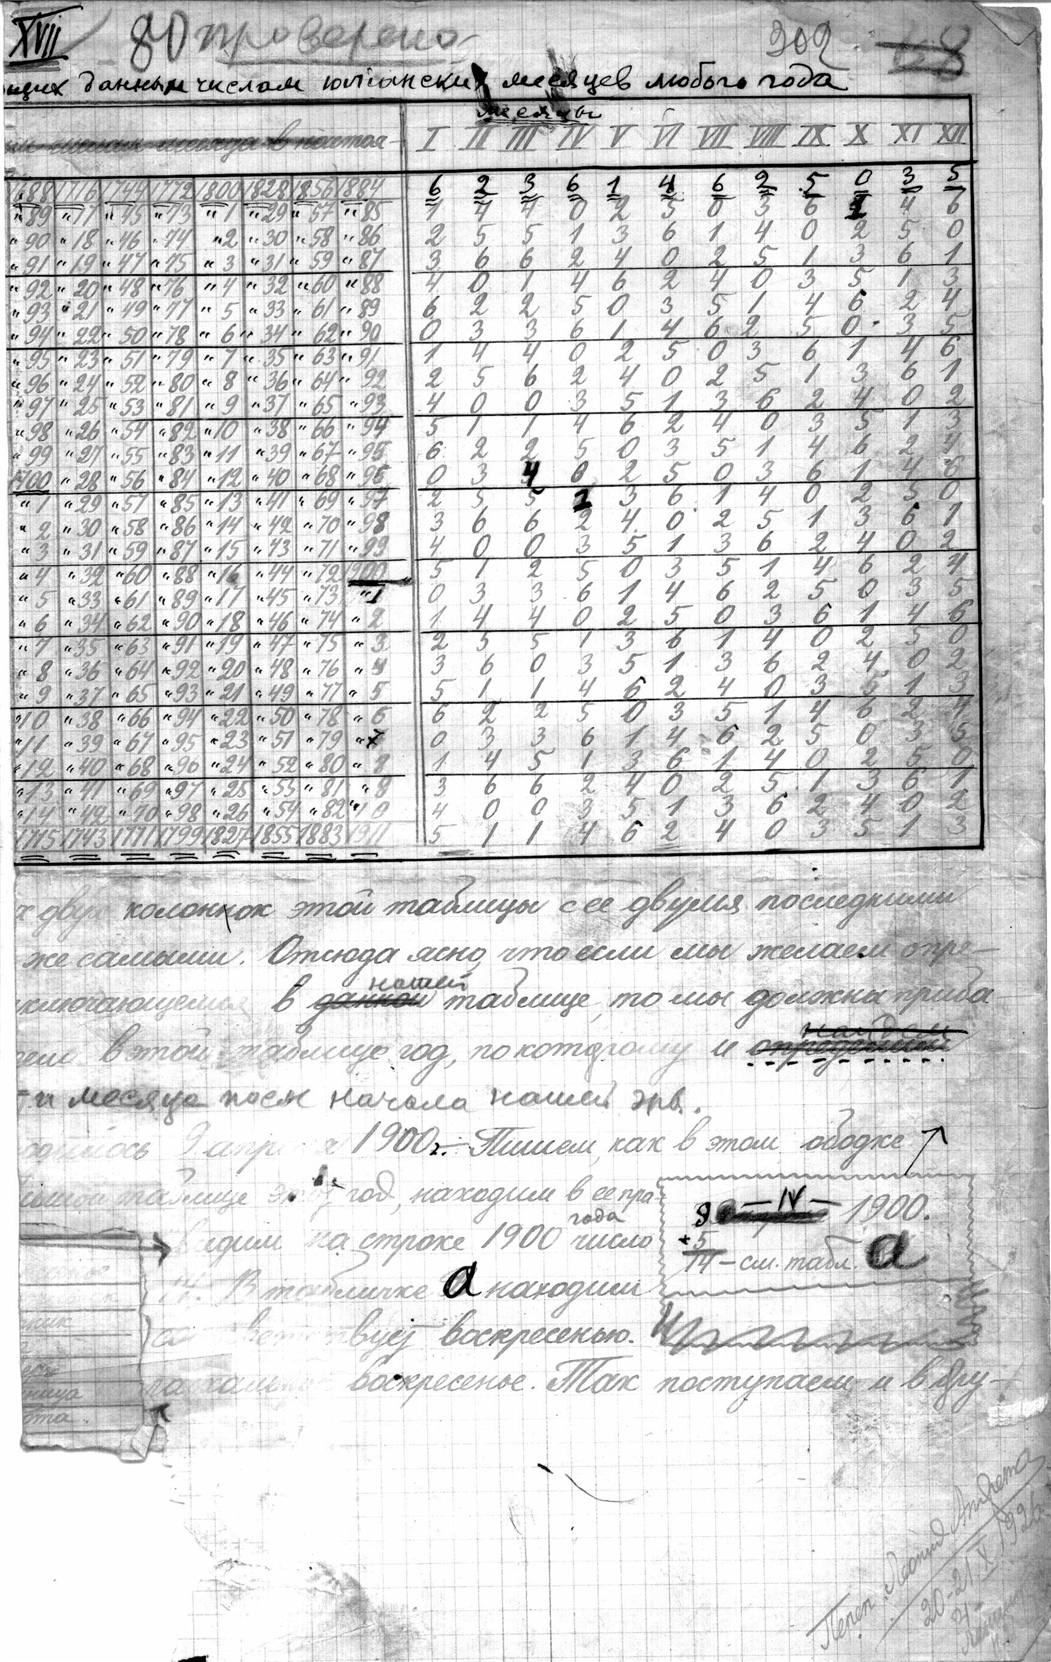 XVII 80 проверено 302
щих данным числам юлианских месяцев любого года
месяцы
I II III IV V VI VII VIII IX X XI XII
1688 1716 1744 1772 1800 1828 1856 1884 6 2 3 6 1 4 6 2 5 0 3 5
"89 "17 "45 "73 "1 "29 "57 "85 1 4 4 0 2 5 0 3 6 1 4 6
"90 "18 "46 "74 "2 "30 "58 "86 2 5 5 1 3 6 1 4 0 2 5 0
"91 "19 "47 "75 "3 "31 "59 "87 3 6 6 2 4 0 2 5 1 3 6 1
"92 "20 "48 "76 "4 "32 "60 "88 4 0 1 4 6 2 4 0 3 5 1 3
"93 "21 "49 "77 "5 "33 "61 "89 6 2 2 5 0 3 5 1 4 6 2 4
"94 "22 "50 "78 "6 "34 "62 "90 0 3 3 6 1 4 6 2 5 0 3 5
"95 "23 "51 "79 "7 "35 "63 "91 1 4 4 0 2 5 0 3 6 1 4 6
"96 "24 "52 "80 "8 "36 "64 "92 2 5 6 2 4 0 2 5 1 3 6 1
"97 "25 "53 "81 "9 "37 "65 "93 4 0 0 3 5 1 3 6 2 4 0 2
"98 "26 "54 "82 "10 "38 "66 "94 5 1 1 4 6 2 4 0 3 5 1 3
"99 "27 "55 "83 "11 "39 "67 "95 6 2 2 5 0 3 5 1 4 6 2 4
1700 "28 "56 "84 "12 "40 "68 "96 0 3 4 0 2 5 0 3 6 1 4 6
"1 "29 "57 "85 "13 "41 "69 "97 2 5 5 1 3 6 1 4 0 2 5 0
"2 "30 "58 "86 "14 "42 "70 "98 3 6 6 2 4 0 2 5 1 3 6 1
"3 "31 "59 "87 "15 "43 "71 "99 4 0 0 3 5 1 3 6 2 4 0 2
"4 "32 "60 "88 "16 "44 "72 1900 5 1 2 5 0 3 5 1 4 6 2 4
"5 "33 "61 "89 "17 "45 "73 "1 0 3 3 6 1 4 6 2 5 0 3 5
"6 "34 "62 "90 "18 "46 "74 "2 1 4 4 0 2 5 0 3 6 1 4 6
"7 "35 "63 "91 "19 "47 "75 "3 2 5 5 1 3 6 1 4 0 2 5 0
"8 "36 "64 "92 "20 "48 "76 "4 3 6 0 3 5 1 3 6 2 4 0 2
"9 "37 "65 "93 "21 "49 "77 "5 5 1 1 4 6 2 4 0 3 5 1 3
"10 "38 "66 "94 "22 "50 "78 "6 6 2 2 5 0 3 5 1 4 6 2 4
"11 "39 "67 "95 "23 "51 "79 "7 0 3 3 6 1 4 6 2 5 0 3 5
"12 "40 "68 "96 "24 "52 "80 "8 1 4 5 1 3 6 1 4 0 2 5 0
"13 "41 "69 "97 "25 "53 "81 3 6 6 2 4 0 2 5 1 3 6 1
"14 "42 "70 "98 "26 "54 "82 4 0 0 3 5 1 3 6 2 4 0 2
1715 1743 1771 1799 1827 1855 1883 1911 5 1 1 4 6 2 4 0 3 5 1 3
х двух колонок этой таблицы с ее двумя последними
же самыми. Отсюда ясно, что если мы желаем опре-
ключающемся в нашей таблице, то мы должны приба
в этой таблице год, по которому и
ти месяца после начала нашей эры.
9 апреля 1900 г. Пишем, как в этом ободке
таблице этот год, находим в ее пра-
на строке 1900 года число
9 — IV — 1900.
+5
14 — см. табл. a
14. В табличке a находим
соответствует воскресенью.
пасхальное воскресенье. Так поступаем и в дру-
Переп. Леонид Андреев
20-21 V 1926